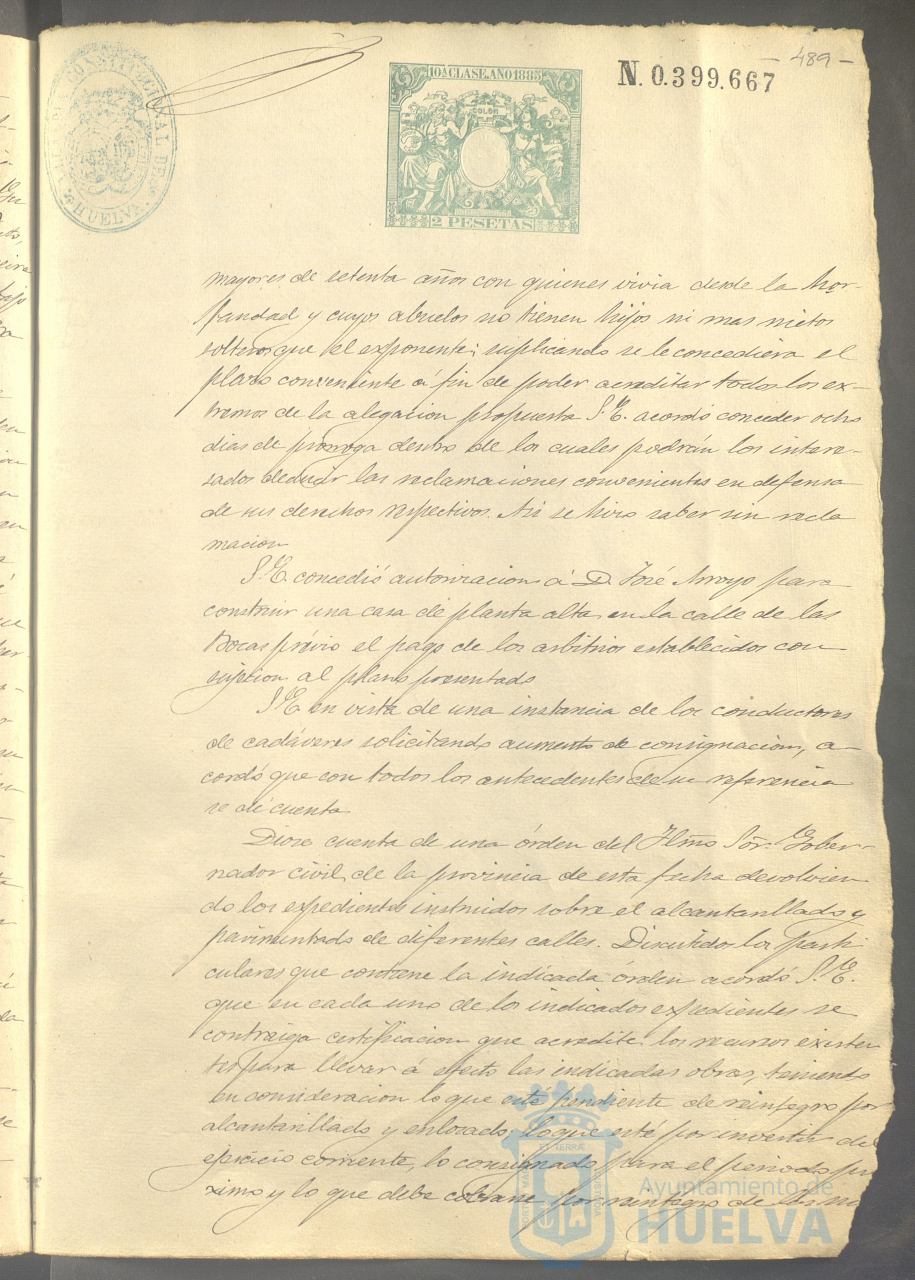 - 489 -
N. 0.399.667
CONSTITUCIONAL DE
HUELVA.
10.A CLASE. AÑO 1885
COLON
2 PESETAS
mayores de setenta años con quienes vivia desde la hor-
fandad y cuyos abuelos no tienen hijos ni mas nietos
solteros que el exponente; suplicando se le concediera el
plazo conveniente á fin de poder acreditar todos los ex-
tremos de la alegacion propuesta S.E. acordó conceder ocho
dias de prorroga dentro de los cuales podrán los intere-
sados deducir las reclamaciones convenientes en defensa
de sus derechos respectivos. Asi se hizo saber sin recla
macion
S.E. concedió autorizacion á D. José Arroyo para
construir una casa de planta alta en la calle de las
Bocas prévio el pago de los arbitrios establecidos con
sujetion al plano presentado
S.E. en vista de una instancia de los conductores
de cadáveres solicitando aumento de consignacion, a-
cordó que con todos los antecedentes de su referencia
se dé cuenta
Diose cuenta de una órden del Iltmo Sor. Gober-
nador civil de la provincia de esta fecha devolvien
do los expedientes instruidos sobre el alcantarillado y
pavimentado de diferentes calles. Discutidos los parti
culares que contiene la indicada órden acordó S.E.
que en cada uno de los indicados expedientes se
contraiga certificacion que acredite los recursos existen
tes para llevar á efecto las indicadas obras, teniendo
en consideracion lo que esté pendiente de reintegro por
alcantarillado y enlozado, lo que esté por invertir del
ejercicio corriente, lo consignado para el periodo pró
ximo y lo que debe cobrarse por reintegro de
Ayuntamiento de
HUELVA